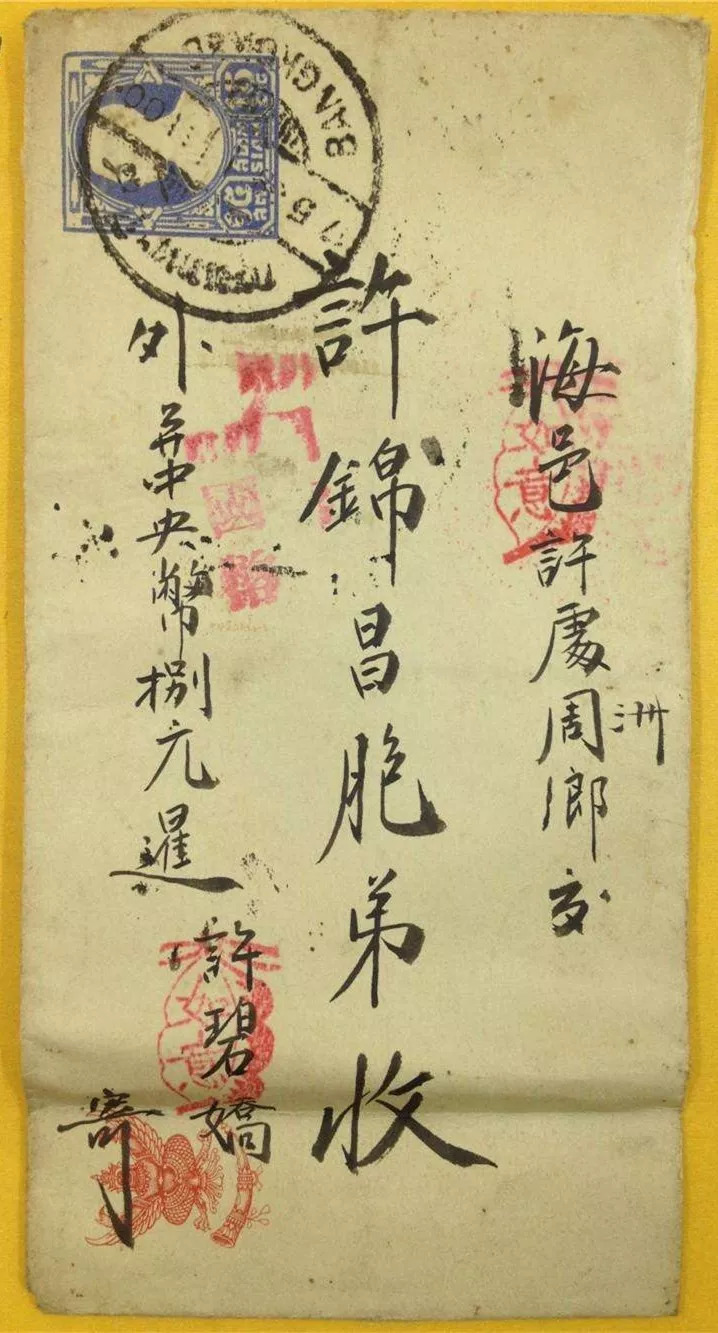 海邑許處周鄉交
洲
許錦昌胞弟收
外幷中央幣捌元暹
許碧嬌
寄
BANGKOK
如意
如意